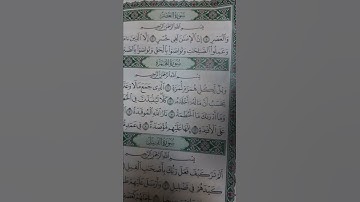 سُورَةُ العَصْرِ
بِسْمِ اللَّهِ الرَّحْمَٰنِ الرَّحِيمِ
وَالْعَصْرِ ۝ إِنَّ الْإِنسَانَ لَفِي خُسْرٍ ۝ إِلَّا الَّذِينَ
وَعَمِلُوا الصَّالِحَاتِ وَتَوَاصَوْا بِالْحَقِّ وَتَوَاصَوْا
سُورَةُ الهُمَزَةِ
بِسْمِ اللَّهِ الرَّحْمَٰنِ الرَّحِيمِ
وَيْلٌ لِّكُلِّ هُمَزَةٍ لُّمَزَةٍ ۝ الَّذِي جَمَعَ مَالًا
يَحْسَبُ أَنَّ مَالَهُ أَخْلَدَهُ ۝ كَلَّا لَيُنبَذَنَّ فِي
وَمَا أَدْرَاكَ مَا الْحُطَمَةُ ۝ نَارُ اللَّهِ الْمُوقَدَةُ ۝
عَلَى الْأَفْئِدَةِ ۝ إِنَّهَا عَلَيْهِم مُّؤْصَدَةٌ ۝ فِي
سُورَةُ الفِيلِ
بِسْمِ اللَّهِ الرَّحْمَٰنِ الرَّحِيمِ
أَلَمْ تَرَ كَيْفَ فَعَلَ رَبُّكَ بِأَصْحَابِ الْفِيلِ
كَيْدَهُمْ فِي تَضْلِيلٍ ۝ وَأَرْسَلَ عَلَيْهِمْ